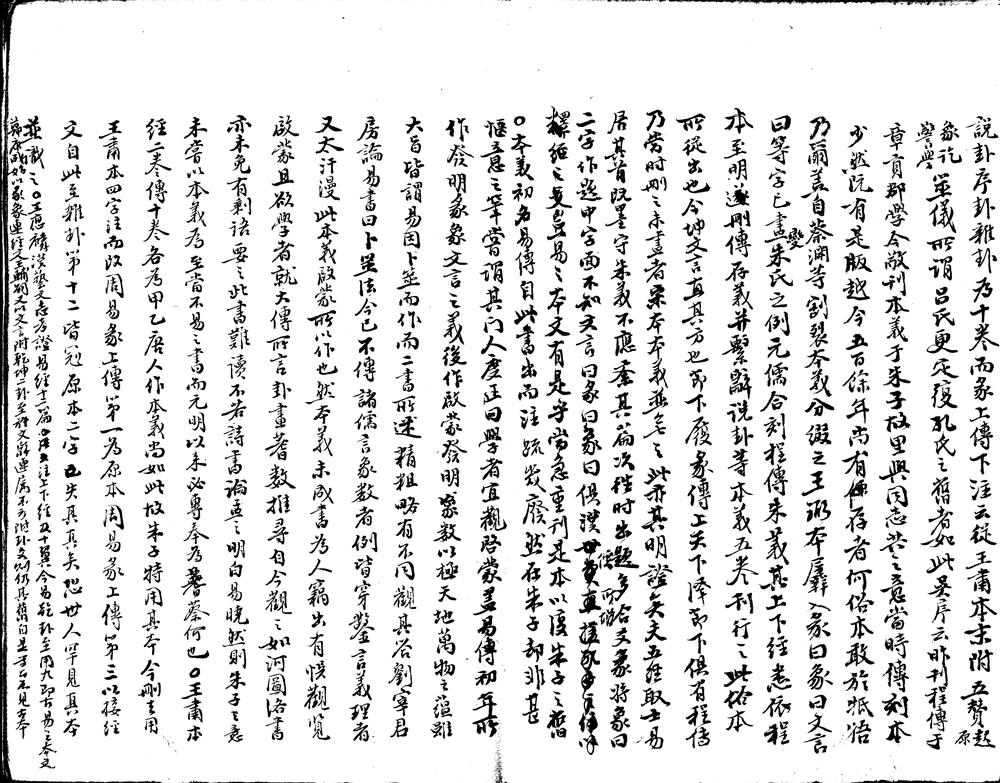 說卦序卦雜卦为十卷而彖上傳下注云從王肅本末附五贊起原
象訖警學筮儀所謂吕氏更定復孔氏之舊者如此吴序云昨刊程傳于
章貢郡學今敬刊本義于朱子故里與同志共之意當時傳刻本
少然阮有是版越今五百餘年尚有存者何俗本敢於牴牾
乃爾盖自蔡淵等割裂本義分綴之王弼本羼入彖曰象曰文言
曰等字已盡變朱氏之例元儒合刻程傳朱義其上下經悉依程
本至明遂刪傳存義并繫辭説卦等本義五卷刊行之此俗本
所從出也今坤文言直其方也節下履彖傳上天下澤節下俱有程傳
乃當時刪之未盡者宋本本義並無之此亦其明證矣夫五經取士易
居其首既墨守朱義不應紊其篇次程时出題多合文象將象曰
二字作題中字面不知文言曰彖曰象曰俱
經之是豈易之本文有是乎當急重刊是本以復朱子之舊
○本義初名易傳自此書出而注疏幾廢然在朱子却非甚
愜意之筆嘗謂其门人度正曰學者宜觀啓蒙盖易傳初年所
作發明彖象文言之義後作啟蒙發明象数以極天地萬物之蕴雖
大旨皆謂易因卜筮而作而二書所述精粗略有不同觀其答劉宰君
房論易書曰卜筮法今已不傳諸儒言象數者例皆穿鑿言義理者
又太汗漫此本義啟蒙所以作也然本義未成書為人竊出有悮觀覽
啟蒙且欲學者就大傳所言卦畫蓍數推尋自今觀之如河圖洛書
亦未免有剩語要之此書難讀不若詩書論孟之明白易曉然則朱子之意
未嘗以本義為至當不易之書而元明以来必專奉為蓍蔡何也○王肅本
經二卷傳十卷各為甲乙唐人作本義尚如此故朱子特用其本今刪去用
王肅本四字注而改周易彖上傳第一為原本周易彖上傳第三以接經
文自此至雜卦第十二皆冠原本二字五失其真矣恐世人罕見其本
並識之○王應麟漢藝文志考證易經十二篇注上下經及十翼今易乾卦至用九即古易之本文
鄭康成始以彖象連經文王輔嗣又以文言附乾坤二卦至於文辭連属不可附卦爻則仍其舊自是古本不見本